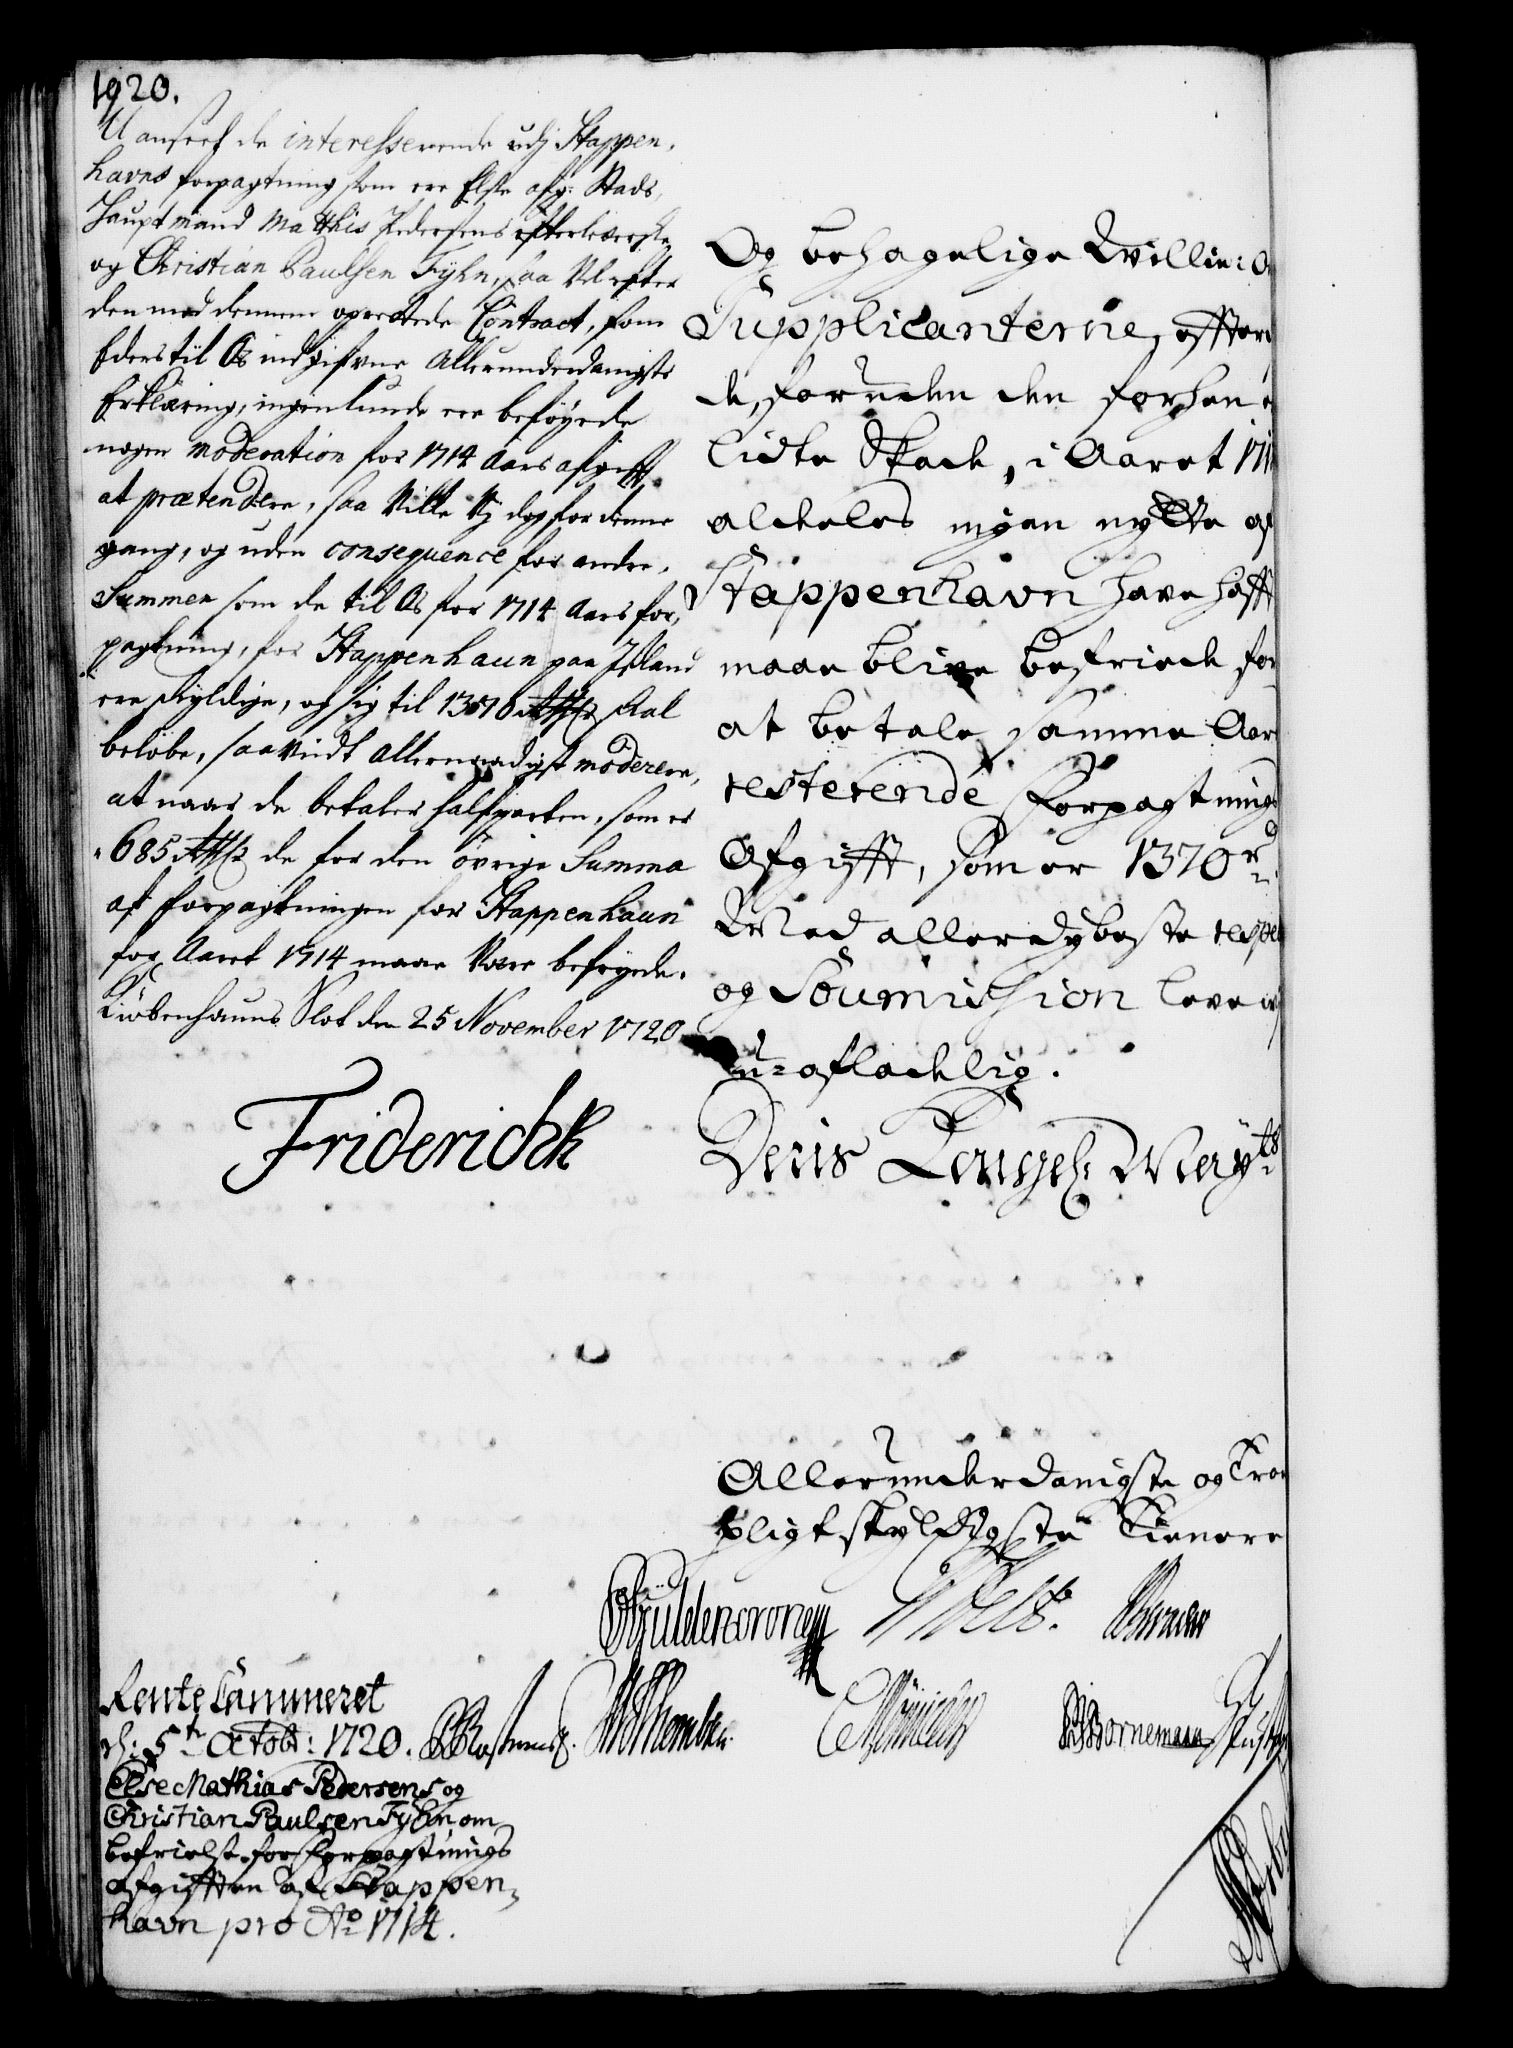 1920.
U anseet de interesserende udj Stappen-
havns forpagtning som ere Else afg: Stads
Hauptmand Matthis Pedersens efterleverske
og Christian Paulsen Fÿhn, saa vel efter
den med dennem oprettede Contract, som
Eders til Os indgifvne Allerunderdanigste
Erklæring, ingenlunde ere beföyede
nogen moderation for 1714 Aars afgifft
at prætendere, saa Ville Vj dog for denne
gang, og uden consequence for andre,
Summen som de til Os for 1714 Aars for-
pagtning, for Stappenhaun paa Island
ere skyldige, og sig til 1370 Rdr skal
belöbe, saavidt allernaadigst moderere,
at naar de betaler halfparten, som er
685 Rdr de for den övrige Summa
af forpagtningen for Stappenhaun
for Aaret 1714 maae Være befryede.
Kiöbenhauns Slot den 25 November 1720
Friderich R
Og behagelige Willie: O
Supplicanterne, effter
de, foruden den forhen
lidte Skade, i Aaret 171
aldeles ingen nytte af
Stappenhavn have hafft
maae blive befriede for
at betale samme Aars
resterende Forpagtnings
Afgifft, som er 1370 rd
Med allerdybeste respe
og Soumission leve
u-afladelig.
Deris Kongel: Mayts
Allerunderdanigste og Troe
pligtskyldigste Tienere
Güldencrone
Bornemann
Rente Cammeret
d: 5te Octobr: 1720.
Else Mathias Pedersens og
Christian Paulsen Fÿhn om
befrielse for Forpagtnings
afgifften af Stappen-
havn pro Ao 1714.